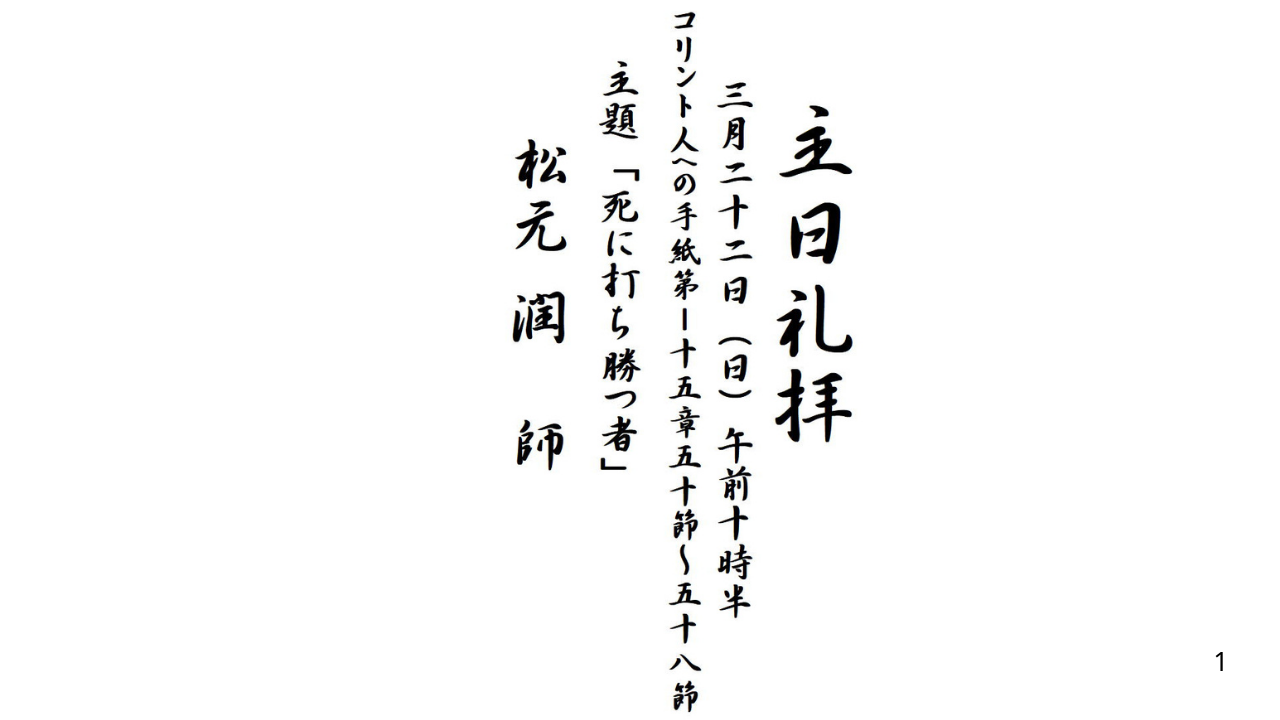 主日礼拝
三月二十二日（日）午前十時半
コリント人への手紙第一十五章五十節～五十八節
主題「死に打ち勝つ者」
松元 潤 師
1